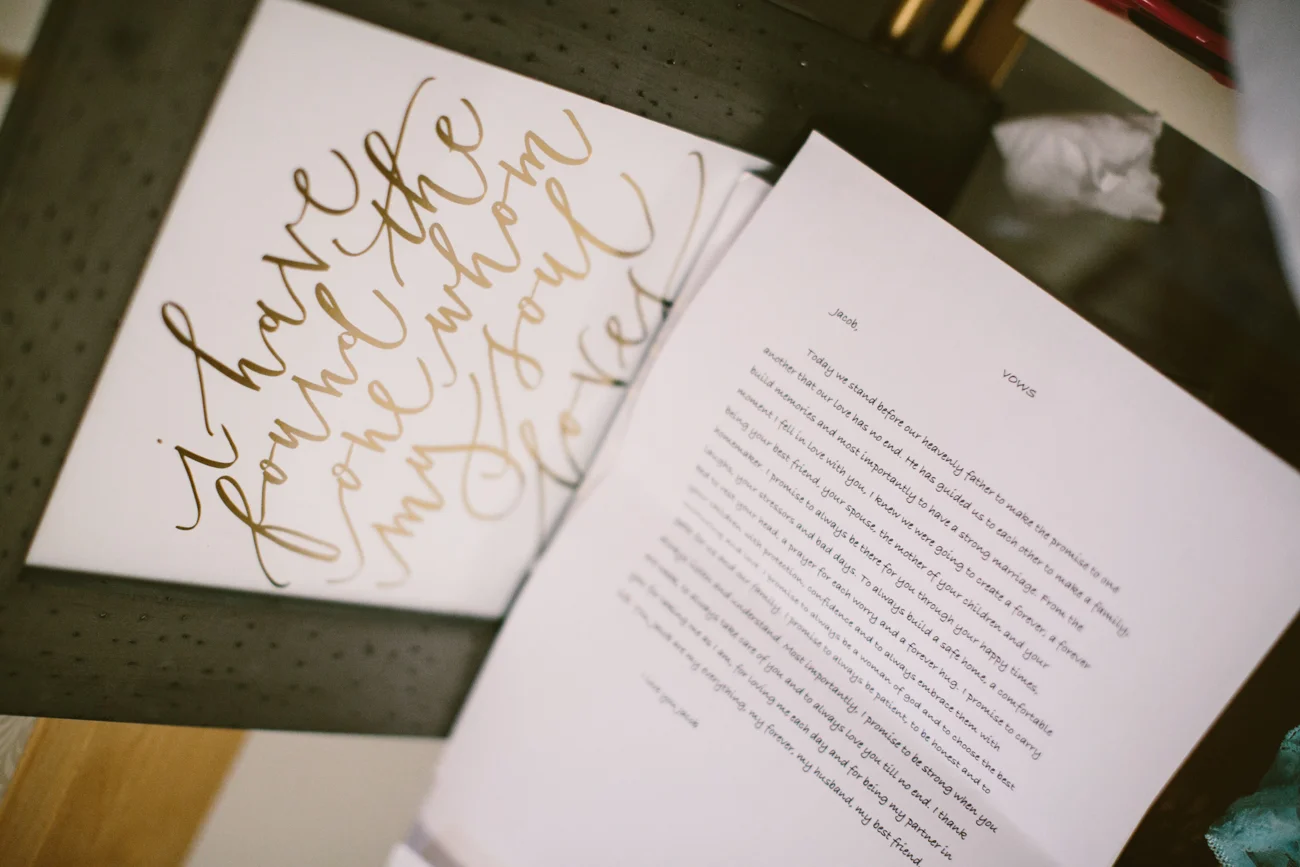 i have
found the
one whom
my soul
loves
Jacob,
VOWS
Today we stand before our heavenly father to make the promise to one
another that our love has no end. He has guided us to each other to make a family,
build memories and most importantly to have a strong marriage. From the
moment I fell in love with you, I knew we were going to create a forever, a forever
being your best friend, your spouse, the mother of your children and your
homemaker. I promise to always be there for you through your happy times,
laughs, your stressors and bad days. To always build a safe home, a comfortable
bed to rest your head, a prayer for each worry and a forever hug. I promise to carry
your children with protection, confidence and to always embrace them with
and love. I promise to always be a woman of god and to choose the best
for us and our family. I promise to always be patient, to be honest and to
always listen and understand. Most importantly, I promise to be strong when you
are weak, to always take care of you and to always love you till no end. I thank
you for loving me as I am, for loving me each day and for being my partner in
life. You, Jacob are my everything, my forever, my husband, my best friend
love you, Jacob